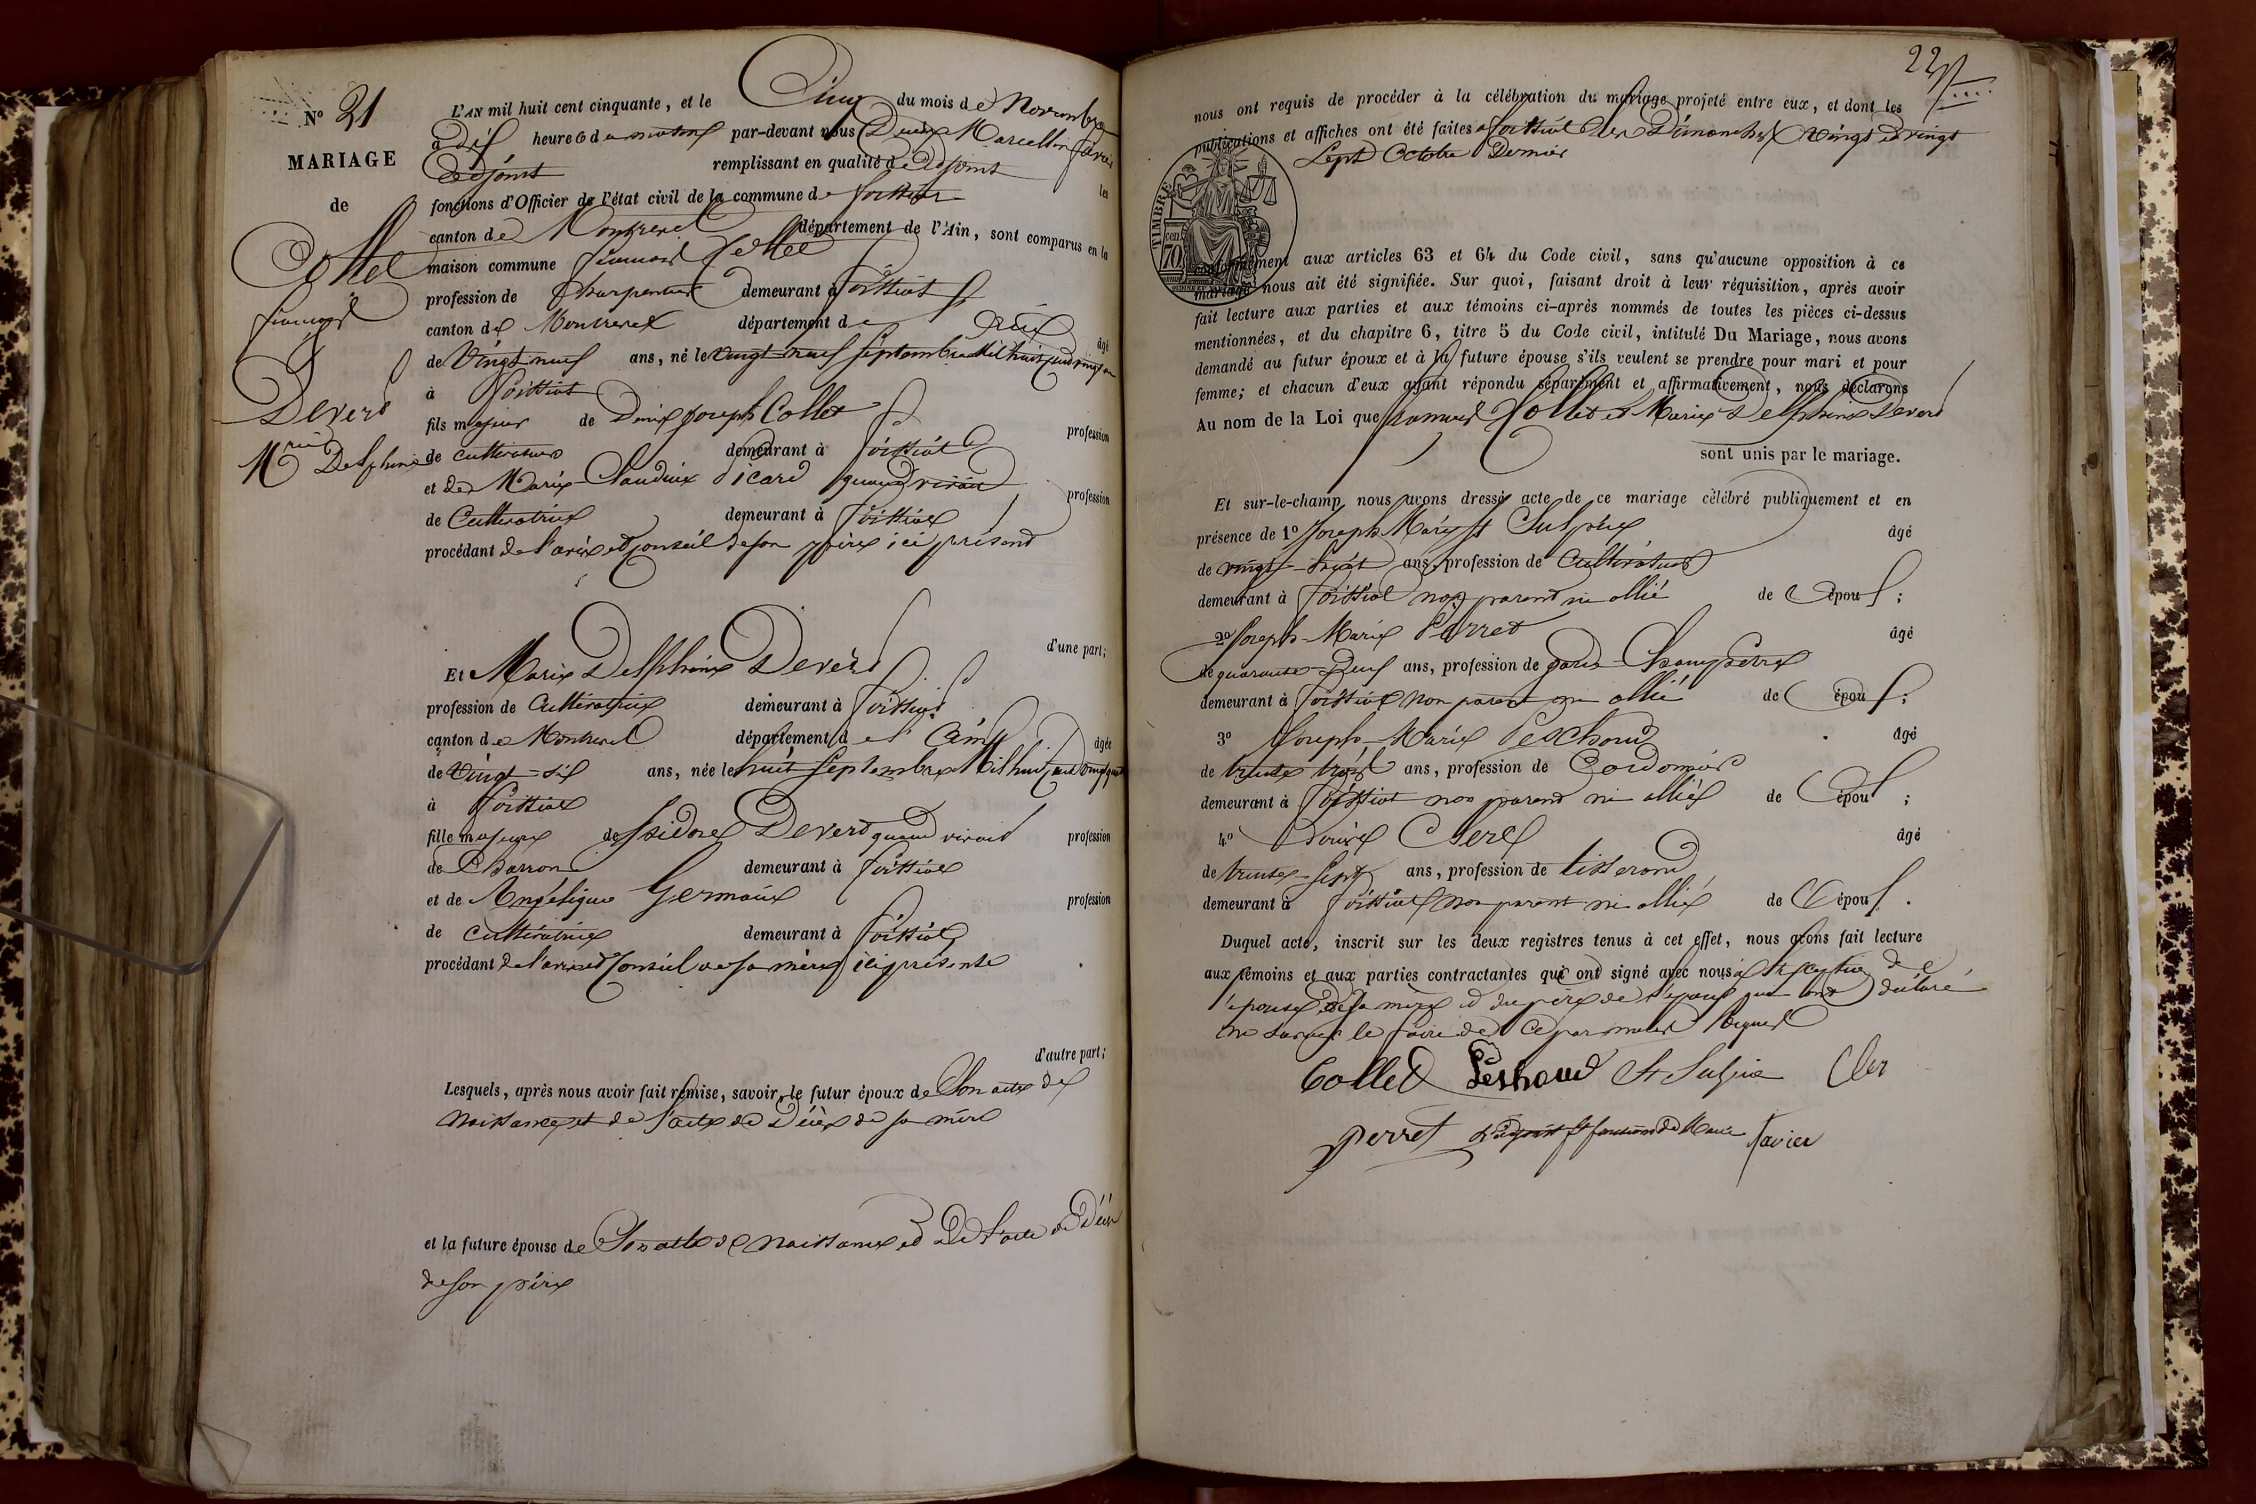 N° 21
MARIAGE
de
Collet
François
Devers
Mrie Delphine
L'AN mil huit cent cinquante, et le Cinq du mois de Novembre
à dix heures du matin par-devant nous Marcellin Favier
adjoint remplissant en qualité d'adjoint les
fonctions d'Officier de l'état civil de la commune de Foissiat
canton de Montrevel département de l'Ain, sont comparus en la
maison commune François Collet
profession de Charpentier demeurant à Foissiat
canton de Montrevel département de l'Ain âgé
de Vingt neuf ans, né le vingt neuf septembre Mil huit cent vingt un
à Foissiat
fils majeur de Denis Joseph Collet profession
de cultivateur demeurant à Foissiat
et de Marie Claudine Picard quand vivait profession
de Cultivatrice demeurant à Foissiat
procédant de l'avis et conseil de son père ici présent
d'une part;
Et Marie Delphine Devers
profession de Cultivatrice demeurant à Foissiat
canton de Montrevel département de l'Ain âgée
de Vingt-six ans, née le huit septembre Mil huit cent vingt quatre
à Foissiat
fille majeure de Isidore Devers quand vivait profession
de Charron demeurant à Foissiat
et de Angélique Germain profession
de cultivatrice demeurant à Foissiat
procédant de l'avis et Conseil de sa mère ici présente
d'autre part;
Lesquels, après nous avoir fait remise, savoir, le futur époux de Son acte de
Naissance et de l'acte de Décès de sa mère
et la future épouse de Son acte de Naissance et de l'acte de Décès
de son père
22
nous ont requis de procéder à la célébration du mariage projeté entre eux, et dont les
publications et affiches ont été faites à Foissiat les Dimanches Vingt et vingt
Sept Octobre Dernier
TIMBRE
70 cen
conformément aux articles 63 et 64 du Code civil, sans qu'aucune opposition à ce
mariage nous ait été signifiée. Sur quoi, faisant droit à leur réquisition, après avoir
fait lecture aux parties et aux témoins ci-après nommés de toutes les pièces ci-dessus
mentionnées, et du chapitre 6, titre 5 du Code civil, intitulé Du Mariage, nous avons
demandé au futur époux et à la future épouse s'ils veulent se prendre pour mari et pour
femme; et chacun d'eux ayant répondu séparément et affirmativement, nous déclarons
Au nom de la Loi que François Collet et Marie Delphine Devers
sont unis par le mariage.
Et sur-le-champ nous avons dressé acte de ce mariage célébré publiquement et en
présence de 1° Joseph Marie St Sulpice âgé
de vingt-huit ans, profession de Cultivateur
demeurant à Foissiat non parent ni allié de l'époux;
2° Joseph-Marie Perret âgé
de quarante-deux ans, profession de garde-Champêtre
demeurant à Foissiat non parent ni allié de l'époux;
3° Joseph-Marie Peschoud âgé
de trente trois ans, profession de Cordonnier
demeurant à Foissiat non parent ni allié de l'époux;
4° Clerc âgé
de trente-sept ans, profession de tisserand
demeurant à Foissiat non parent ni allié de l'époux.
Duquel acte, inscrit sur les deux registres tenus à cet effet, nous avons fait lecture
aux témoins et aux parties contractantes qui ont signé avec nous à l'exception de
l'épouse, de sa mère et du père de l'époux qui ont déclaré
ne savoir le faire de ce par nous requis
Collet Peshoud St Sulpice Cler
perret L'adjoint ft fonctions de Maire Favier